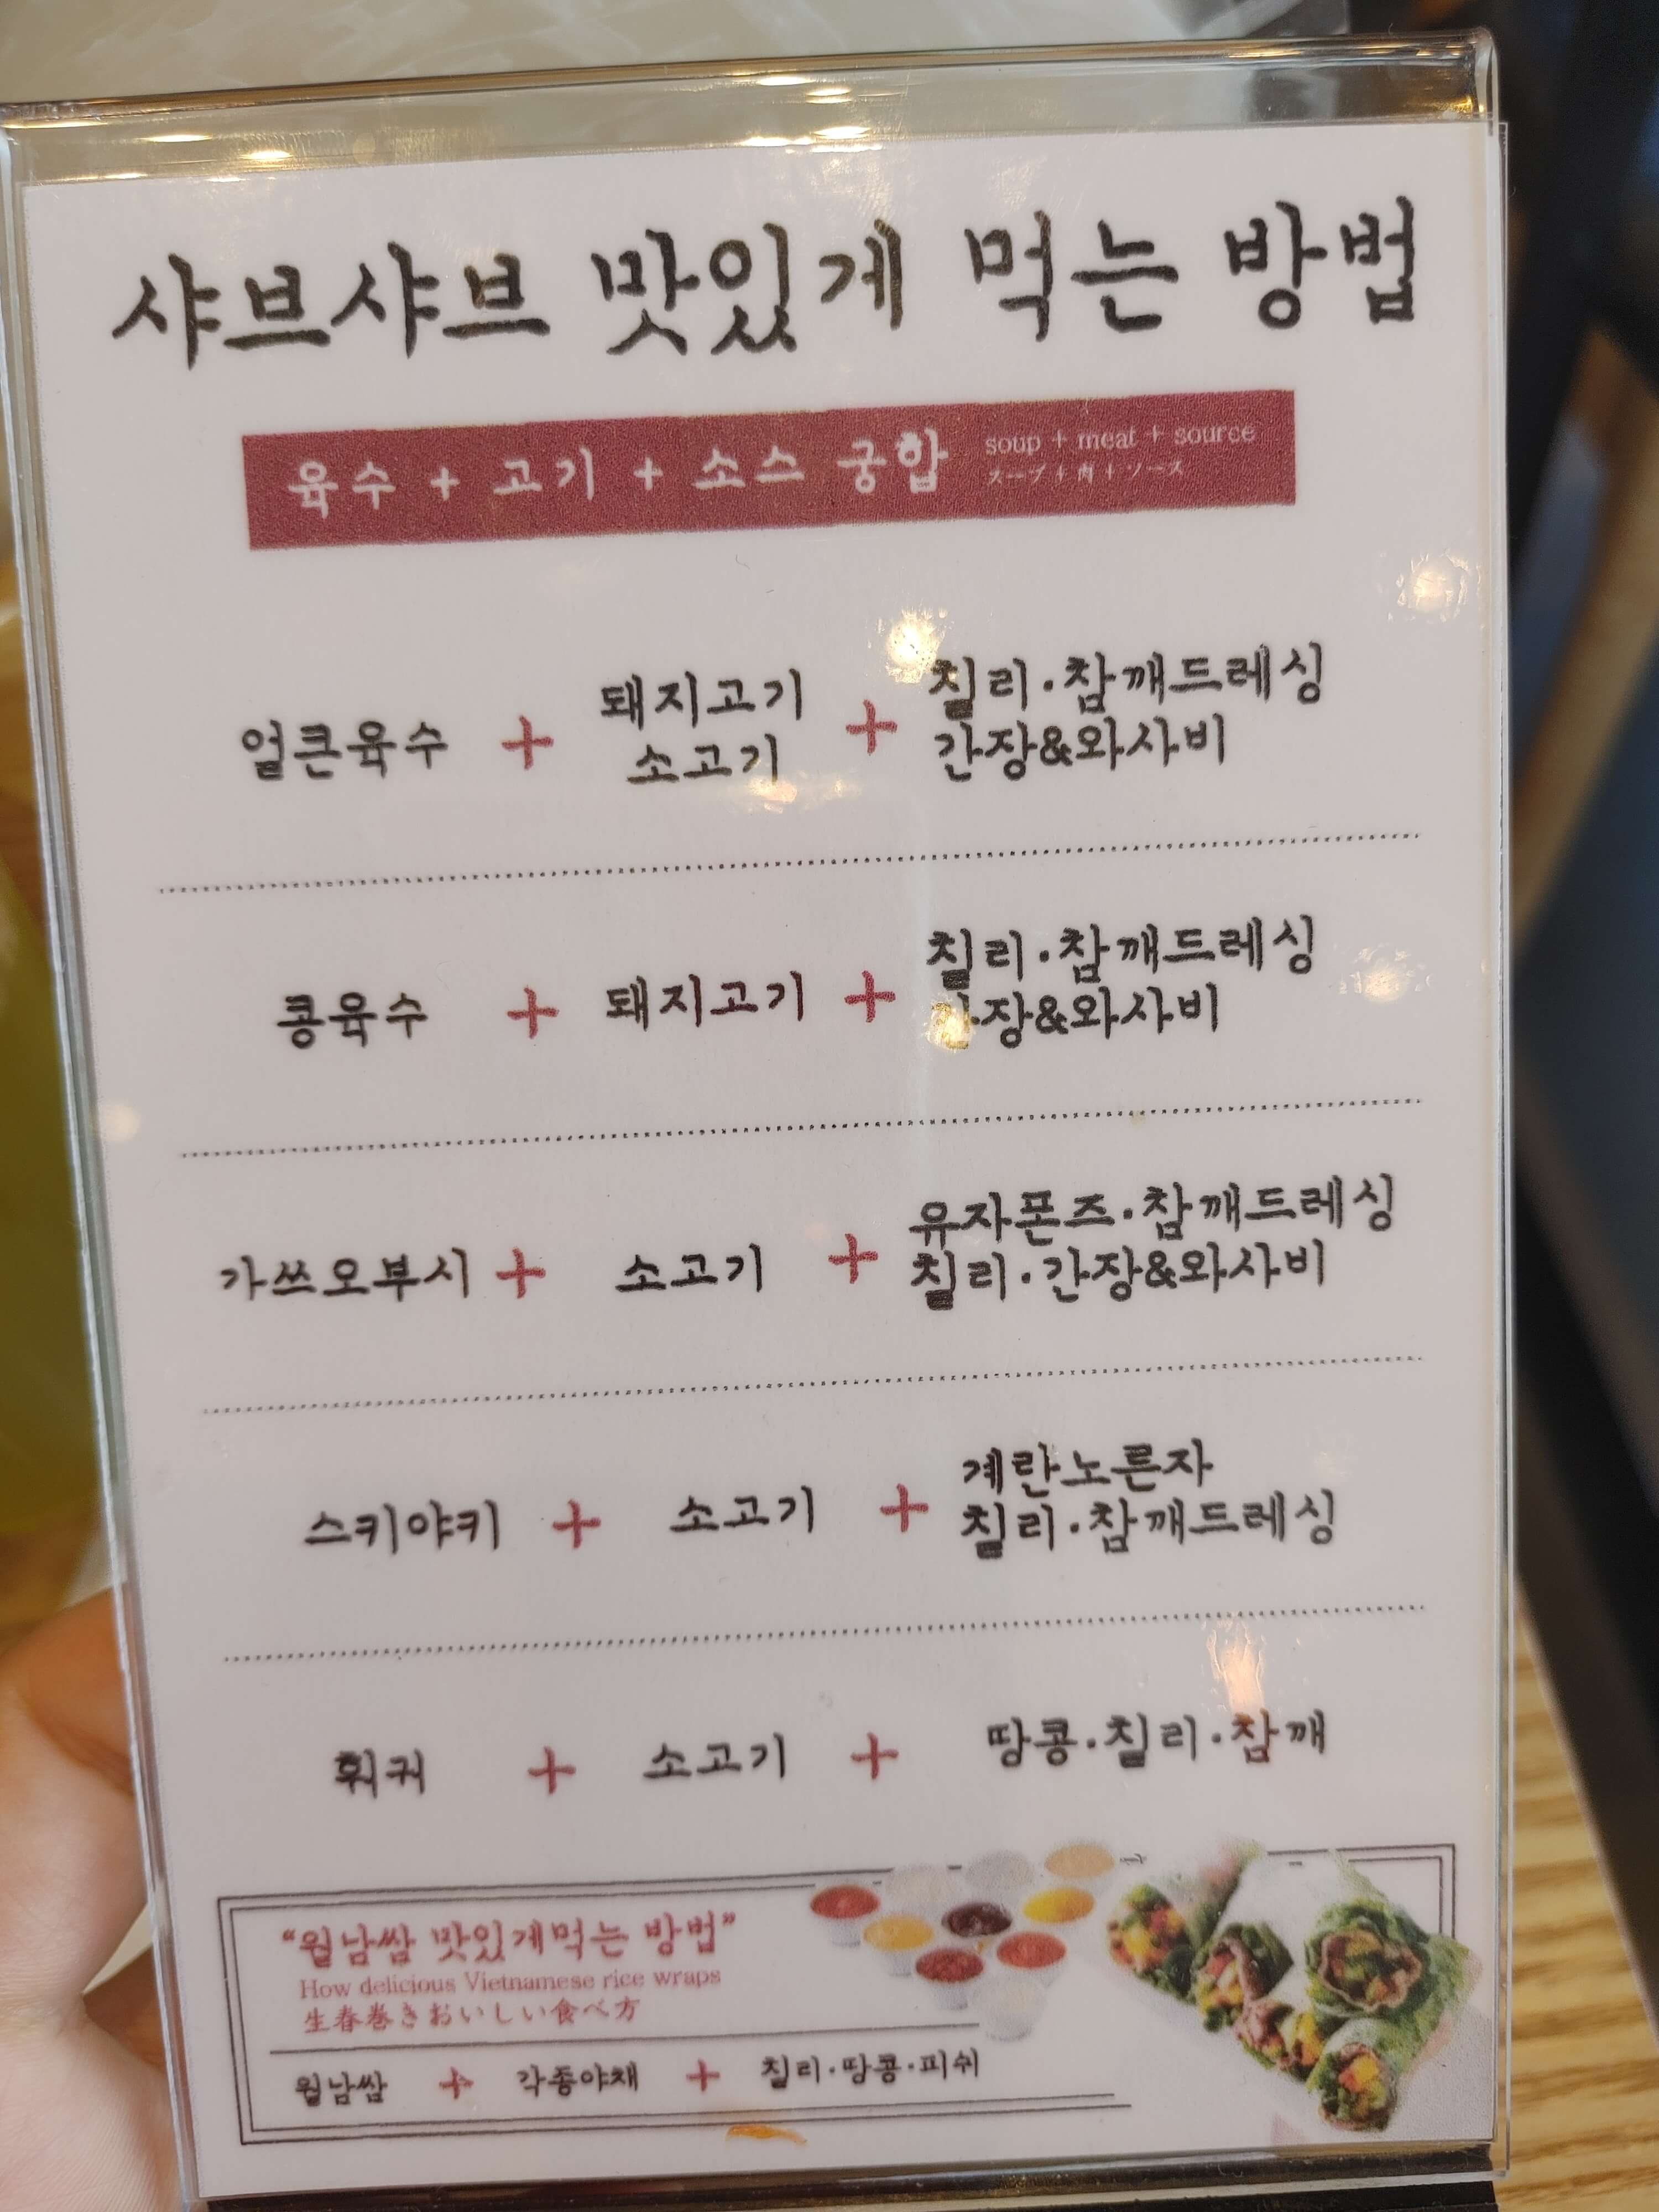 샤브샤브 맛있게 먹는 방법
육수 + 고기 + 소스 궁합
soup + meat + source
スープ + 肉 + ソース
얼큰육수 + 돼지고기 소고기 + 칠리·참깨드레싱 간장&와사비
콩육수 + 돼지고기 + 칠리·참깨드레싱 간장&와사비
가쓰오부시 + 소고기 + 유자폰즈·참깨드레싱 칠리·간장&와사비
스키야키 + 소고기 + 계란노른자 칠리·참깨드레싱
훠궈 + 소고기 + 땅콩·칠리·참깨
“월남쌈 맛있게먹는 방법”
How delicious Vietnamese rice wraps
生春巻きおいしい食べ方
월남쌈 + 각종야채 + 칠리·땅콩·피쉬